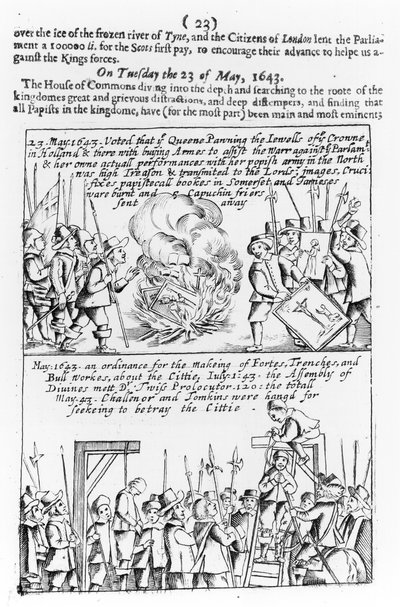 (23)
over the ice of the frozen river of Tyne, and the Citizens of London lent the Parlia-
ment a 100000 li. for the Scots first pay, to encourage their advance to helpe us a-
gainst the Kings forces.
On Tuesday the 23 of May, 1643.
The House of Commons diving into the depth and searching to the roote of the
kingdomes great and grievous distractions, and deep distempers, and finding that
all Papists in the kingdome, have (for the most part) been main and most eminent;
23. May. 1643. Voted that yᵉ Queene Pawning the Iewells of yᵉ Crowne
in Holland & there with buying Armes to assist the warr against yᵉ Parlam:
& her owne actuall performances with her popish army in the North
was high Treason & transmited to the Lords: images, Cruci
fixes papisticall bookes in Somerset and Iameses
ware burnt and 5 Capuchin friers
sent away
May: 1643. an ordinance for the makeing of Fortes, Trenches, and
Bull workes, about the Cittie, Iuly: 1: 43. the Assembly of
Divines mett Dʳ Twiss Prolocutor. 120: the totall
May: 43. Challenor and Tomkins were hangd for
seekeing to betray the Cittie.